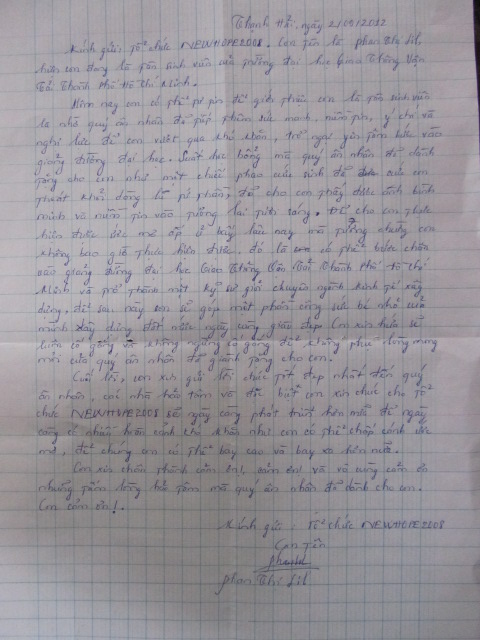 Thạnh Hải, ngày 2/09/2012
Kính gửi: Tổ chức NEWHOPE2008. Con tên là Phan Thị Lil,
hiện con đang là tân sinh viên của trường đại học Giao Thông Vận
Tải Thành Phố Hồ Chí Minh.
Hôm nay con có thể tự tin để giới thiệu con là tân sinh viên
là nhờ quý ân nhân đã tiếp thêm sức mạnh, niềm tin, ý chí và
nghị lực để con vượt qua khó khăn, trở ngại yên tâm bước vào
giảng đường đại học. Suất học bổng mà quý ân nhân đã dành
tặng cho con như một chiếc phao cứu sinh đã cứu con
thoát khỏi dòng, đã cho con thấy được ánh bình
minh và niềm tin vào tương lai tươi sáng. Đã cho con thực
hiện được ước mơ ấp ủ bấy lâu nay mà tưởng chừng con
không bao giờ thực hiện được, đó là có thể bước chân
vào giảng đường đại học Giao Thông Vận Tải Thành Phố Hồ Chí
Minh và trở thành một kỹ sư giỏi chuyên ngành kinh tế xây
dựng, để sau này con sẽ góp một phần công sức bé nhỏ của
mình xây dựng đất nước ngày càng giàu đẹp. Con xin hứa sẽ
luôn cố gắng và không ngừng cố gắng để không phụ lòng mong
mỏi của quý ân nhân đã giành tặng cho con.
Cuối lời, con xin gửi lời chúc tốt đẹp nhất đến quý
ân nhân, các nhà hảo tâm và đặc biệt con xin chúc cho tổ
chức NEWHOPE2008 sẽ ngày càng phát triển hơn nữa để ngày
càng có nhiều hoàn cảnh khó khăn như con có thể chắp cánh ước
mơ, để chúng con có thể bay cao và bay xa hơn nữa.
Con xin chân thành cảm ơn!, cảm ơn! và vô cùng cảm ơn
những tấm lòng hảo tâm mà quý ân nhân đã dành cho con.
Con cảm ơn!.
Kính gửi: Tổ chức NEWHOPE2008
Con tên
Phan Thị Lil